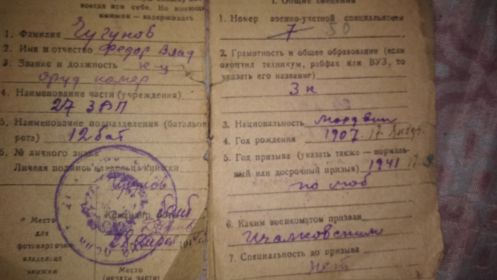 всегда при себе. Не имеющих
книжек — задерживать
1. Фамилия Чугунов
2. Имя и отчество Федор Влад
3. Звание и должность к-ц
оруд номер
4. Наименование части (учреждения)
27 ЗРП
5. Наименование подразделения (батальон,
рота) 12 бат
6. № личного знака
Личная подпись владельца книжки
Место
для
фотокарточки
владельца
книжки
Место
(печати части)
I. Общие сведения
1. Номер военно-учетной специальности
7
2. Грамотность и общее образование (если
окончил техникум, рабфак или ВУЗ, то
указать его название)
3 к
3. Национальность мордвин
4. Год рождения 1907
5. Год призыва (указать также — нормаль-
ный или досрочный призыв) 1941
по моб
6. Каким военкоматом призван
Ичалковским
7. Специальность до призыва
нет